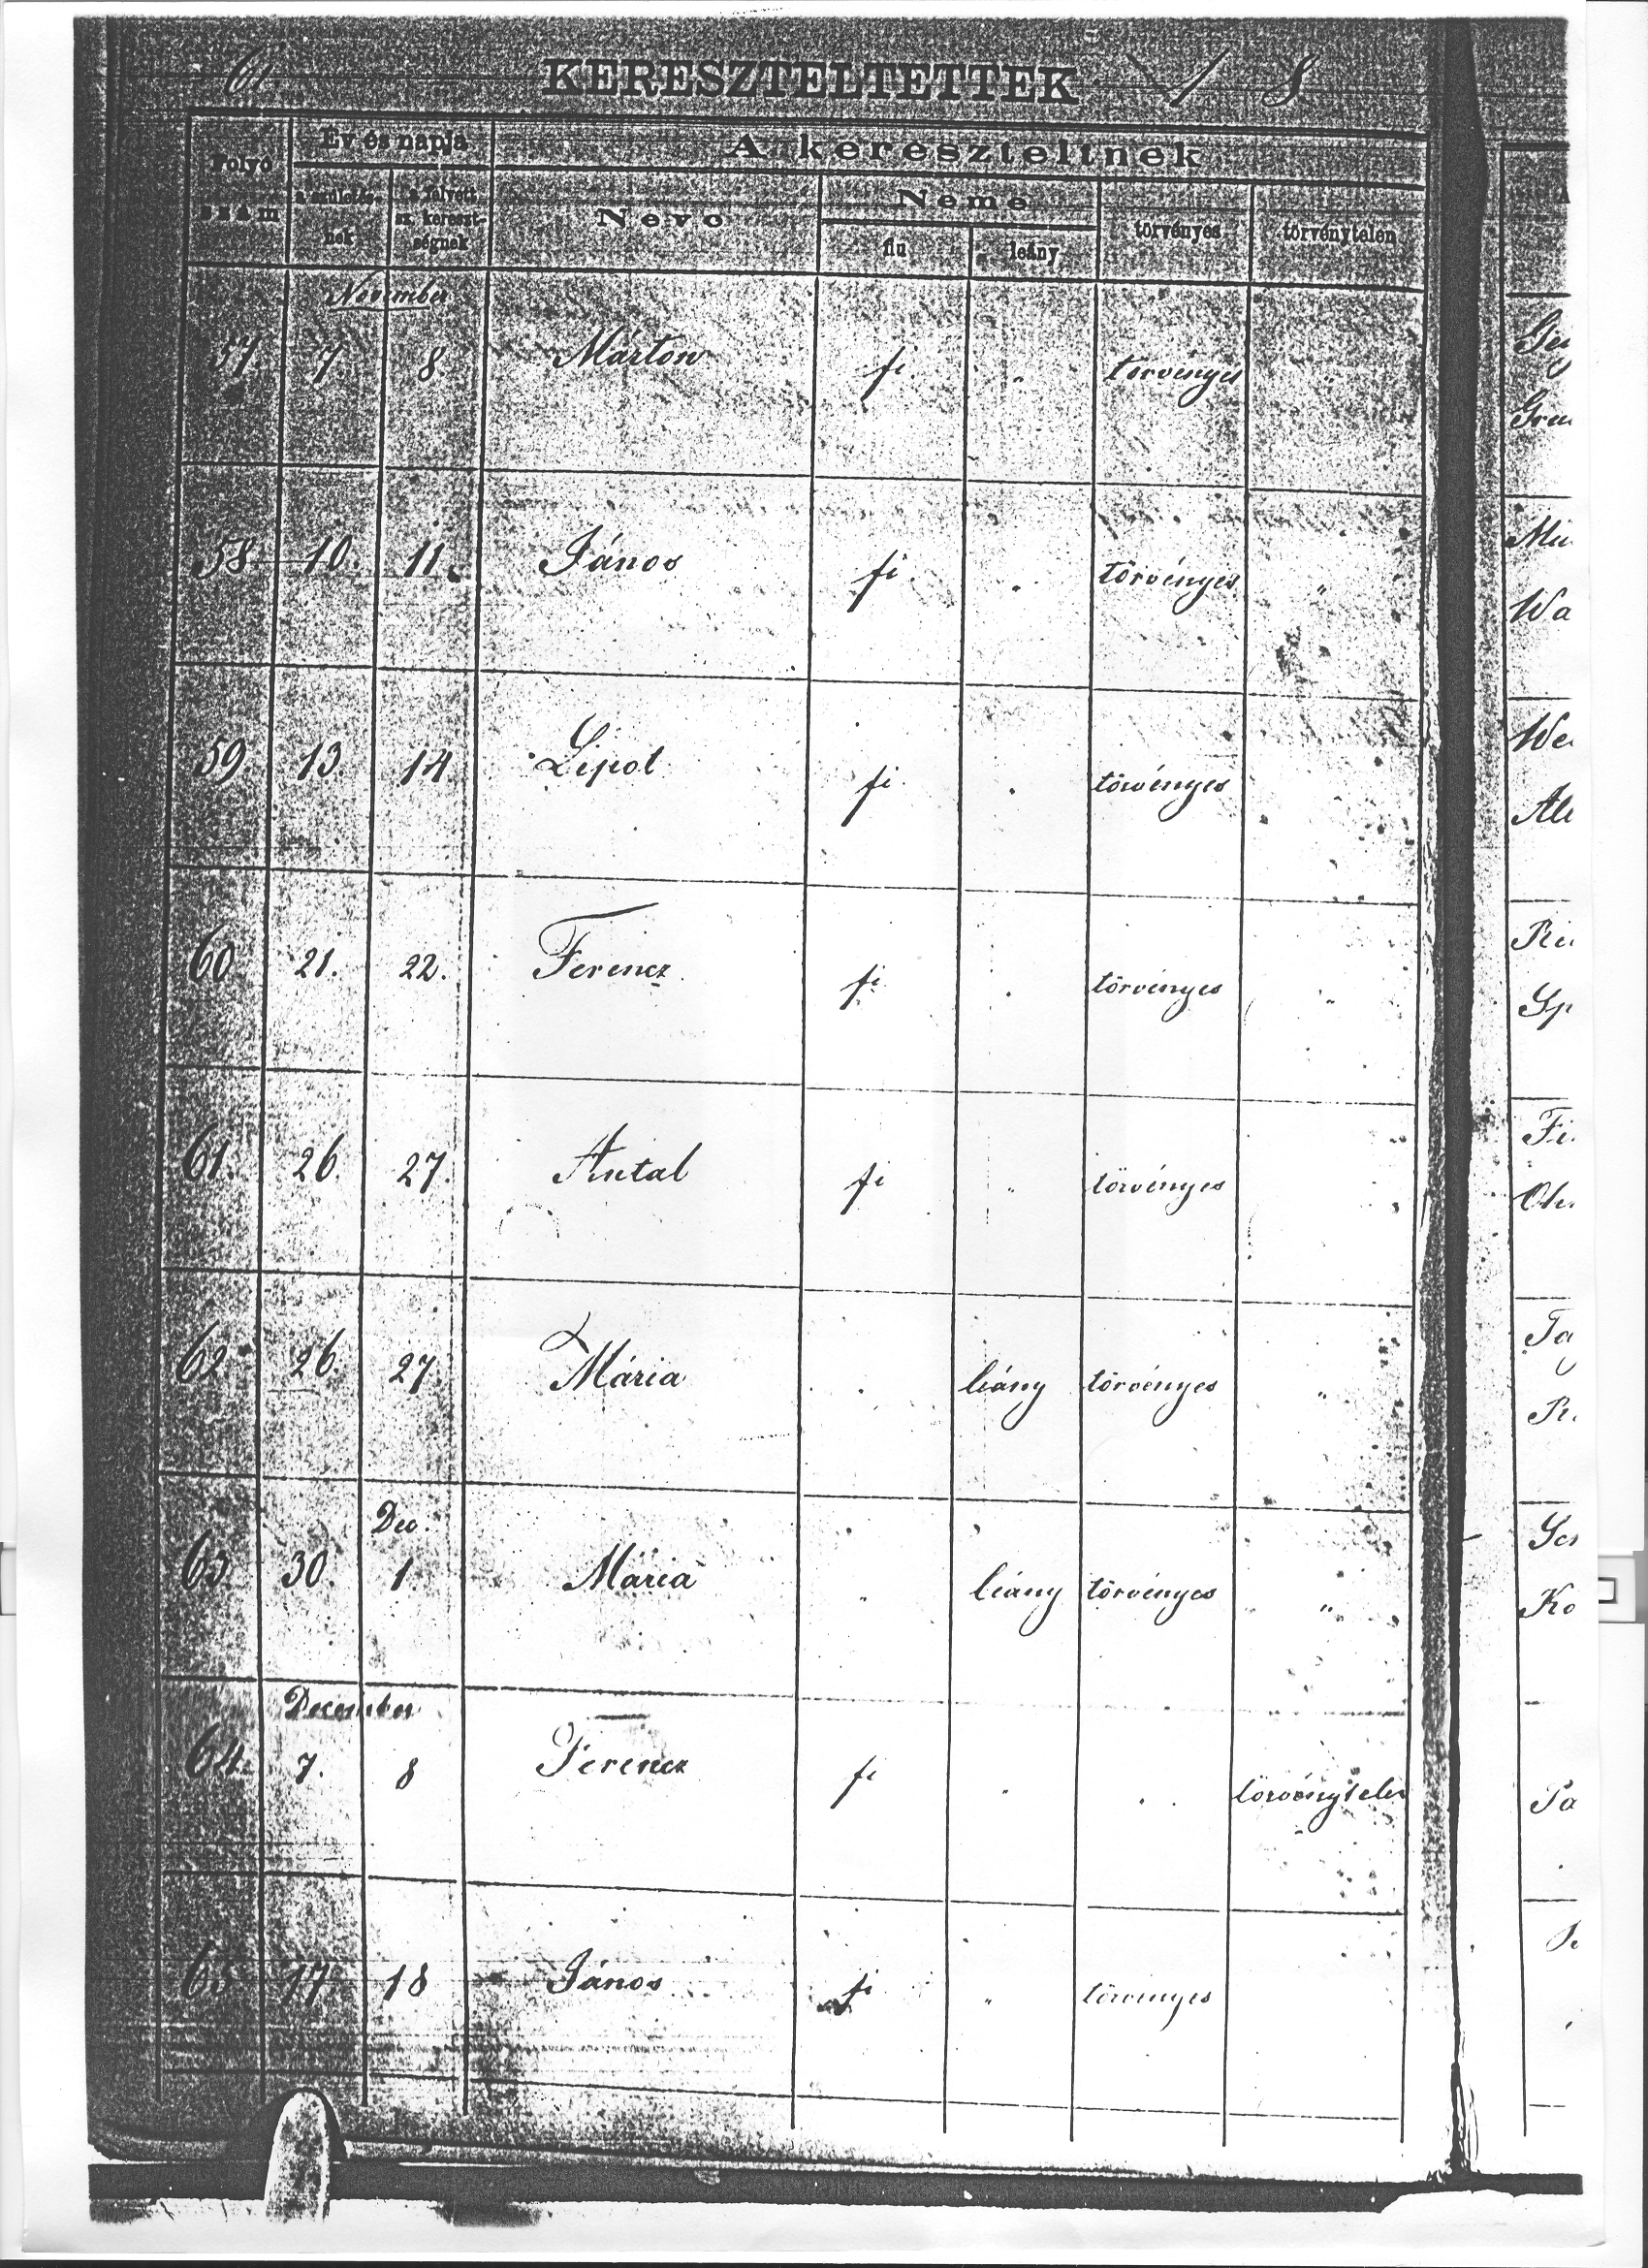 6 KERESZTELTETTEK 1 8
Folyó szám Év és napja A kereszteltnek
a születés-nek a felvett sz. kereszt-ségnek Neve Neme törvényes törvénytelen
fiu leány
November
57. 7. 8 Márton fi. „ törvényes „
58 10. 11. János fi. „ törvényes „
59 13 14 Lipot fi. . törvényes
60 21. 22. Ferencz fi. . törvényes „
61. 26. 27. Antal fi „ törvényes
62 26. 27. Mária . leány törvényes „
Dec.
63 30. 1. Mária „ leány törvényes „
December
64. 7. 8 Ferencz fi . . törvénytelen
65 17. 18 János fi „ törvényes
Wa
Ta
Ko